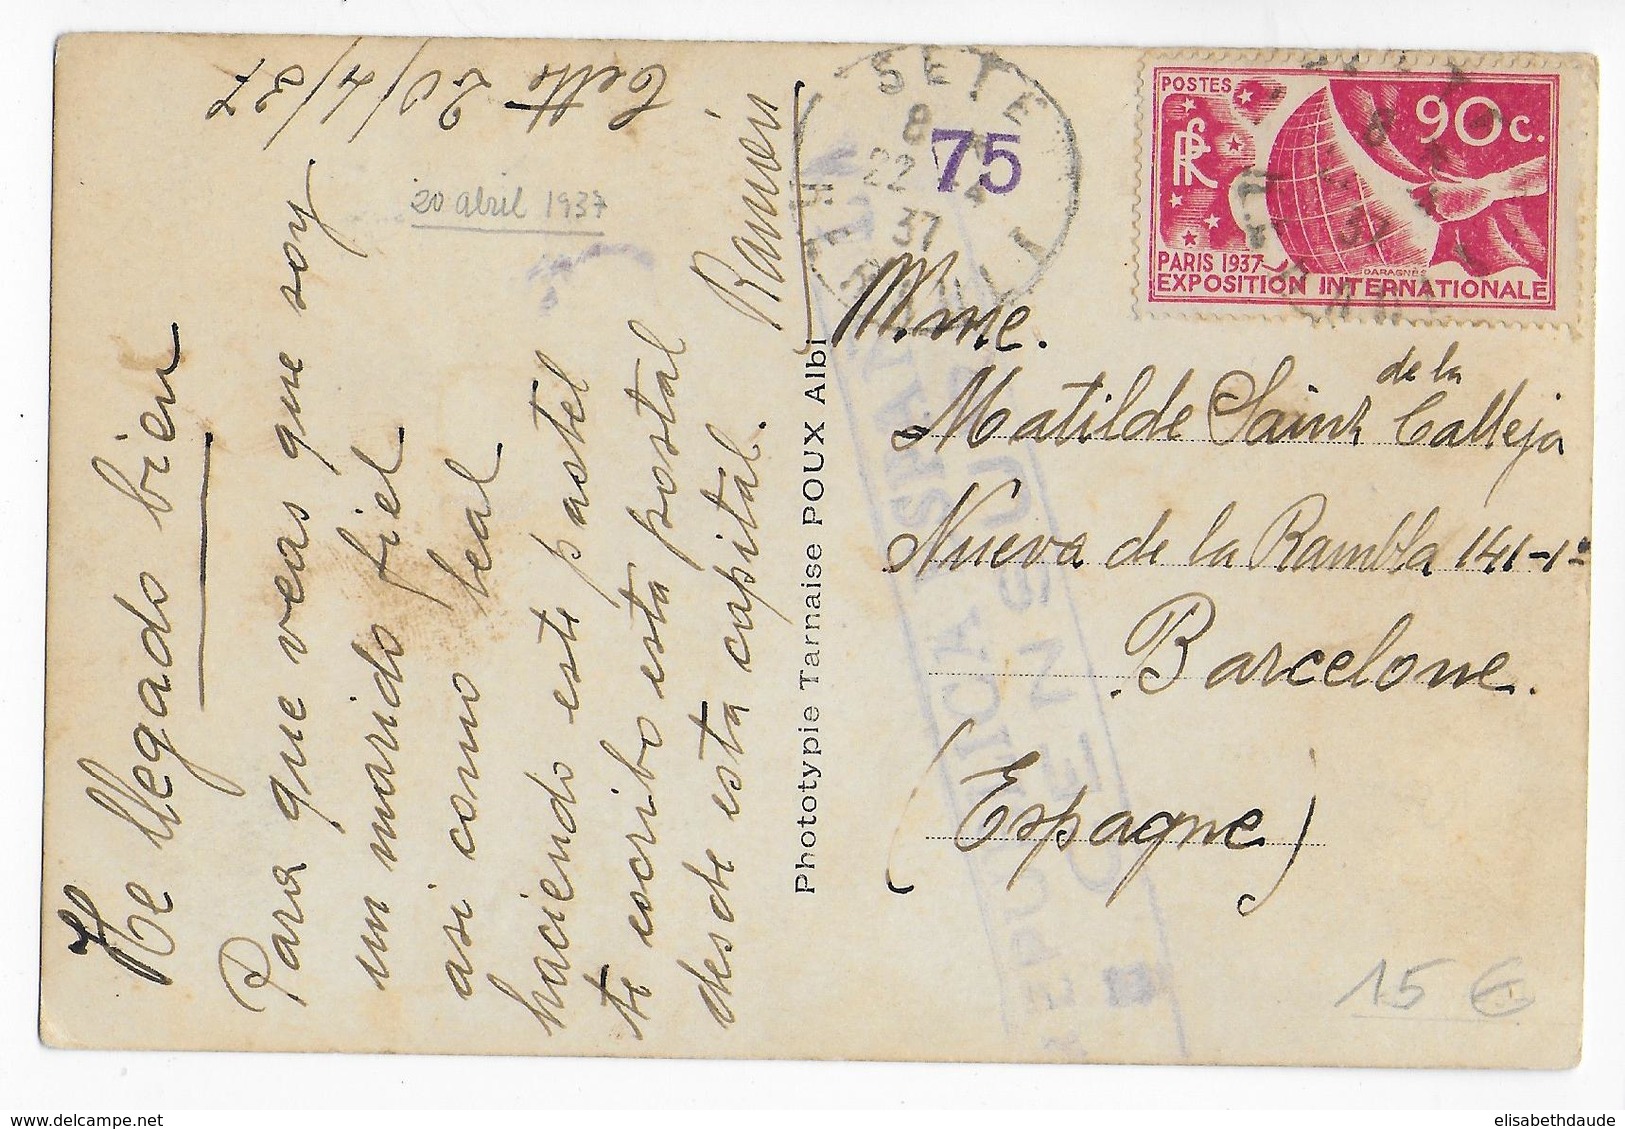 Cette 20/4/37
20 abril 1937
He llegado bien
Para que veas que soy
un marido fiel
asi como leal
haciendo este pastel
te escribo esta postal
desde esta capital.
Ramón
Phototypie Tarnaise POUX Albi
SETE
8
22 -4
37
HERAULT
75
POSTES
RF
90c.
PARIS 1937
DARAGNÈS
EXPOSITION INTERNATIONALE
Mme.
Matilde Sainz de la Calleja
Nueva de la Rambla 141-1º
Barcelone.
(Espagne)
REPUBLICA ESPAÑOLA
CENSURA
15 €
elisabethdaude